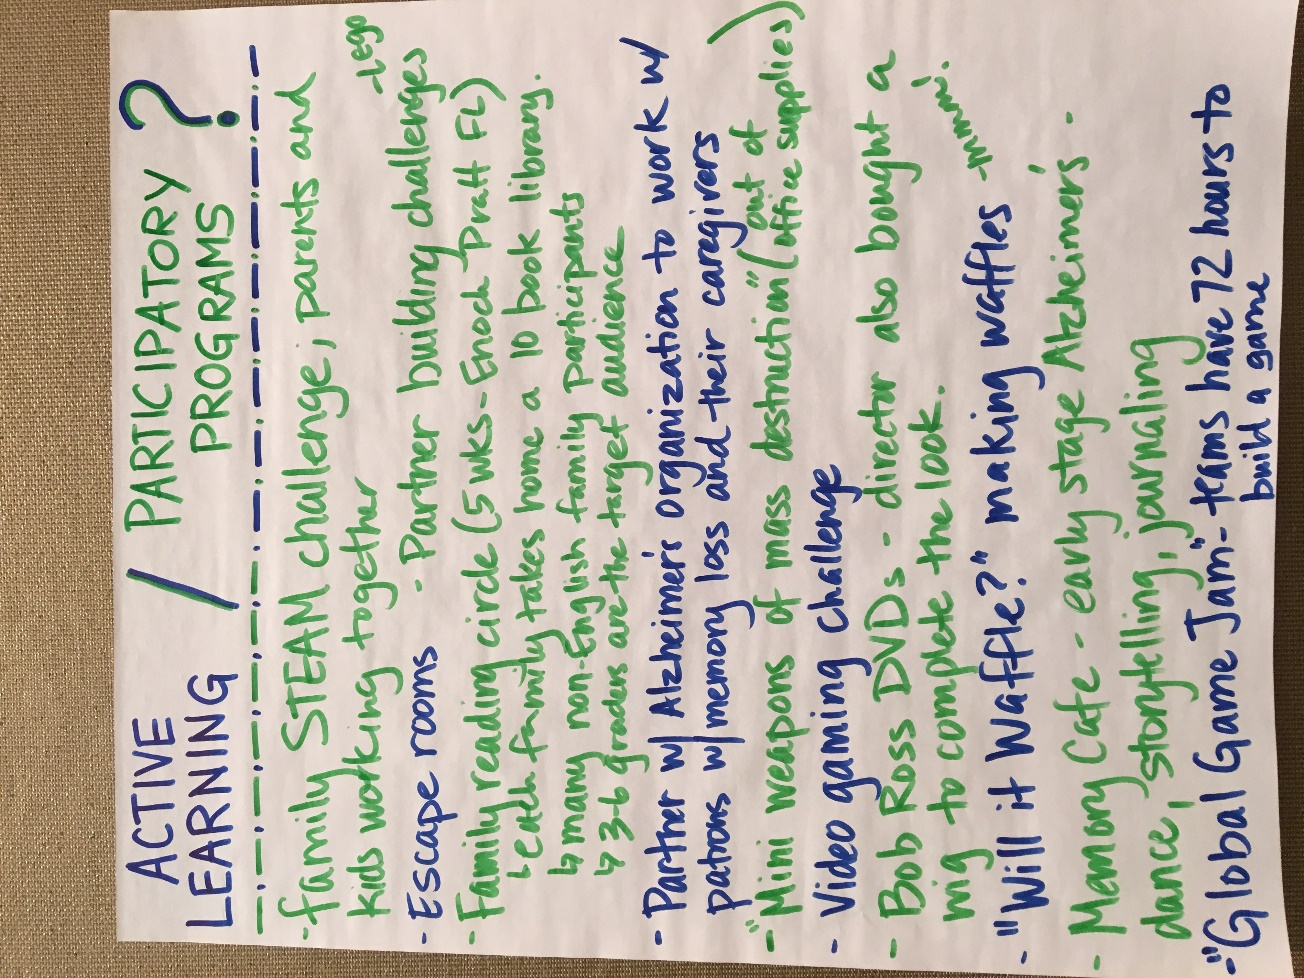 ACTIVE LEARNING / PARTICIPATORY PROGRAMS ?
- family STEAM challenge, parents and
kids working together
- Lego
- Escape rooms - Partner building challenges
- Family reading circle (5 wks - Enoch Pratt FL)
↳ each family takes home a 10 book library.
↳ many non-English family participants
↳ 3-6 graders are the target audience
- Partner w/ Alzheimer's organization to work w/
patrons w/ memory loss and their caregivers
- "Mini weapons of mass destruction" (out of office supplies)
- Video gaming challenge
- Bob Ross DVDs - director also bought a
wig to complete the look.
- "Will it Waffle?" making waffles - mmm!
- Memory Cafe - early stage Alzheimers -
dance, storytelling, journaling
- "Global Game Jam" - teams have 72 hours to
build a game